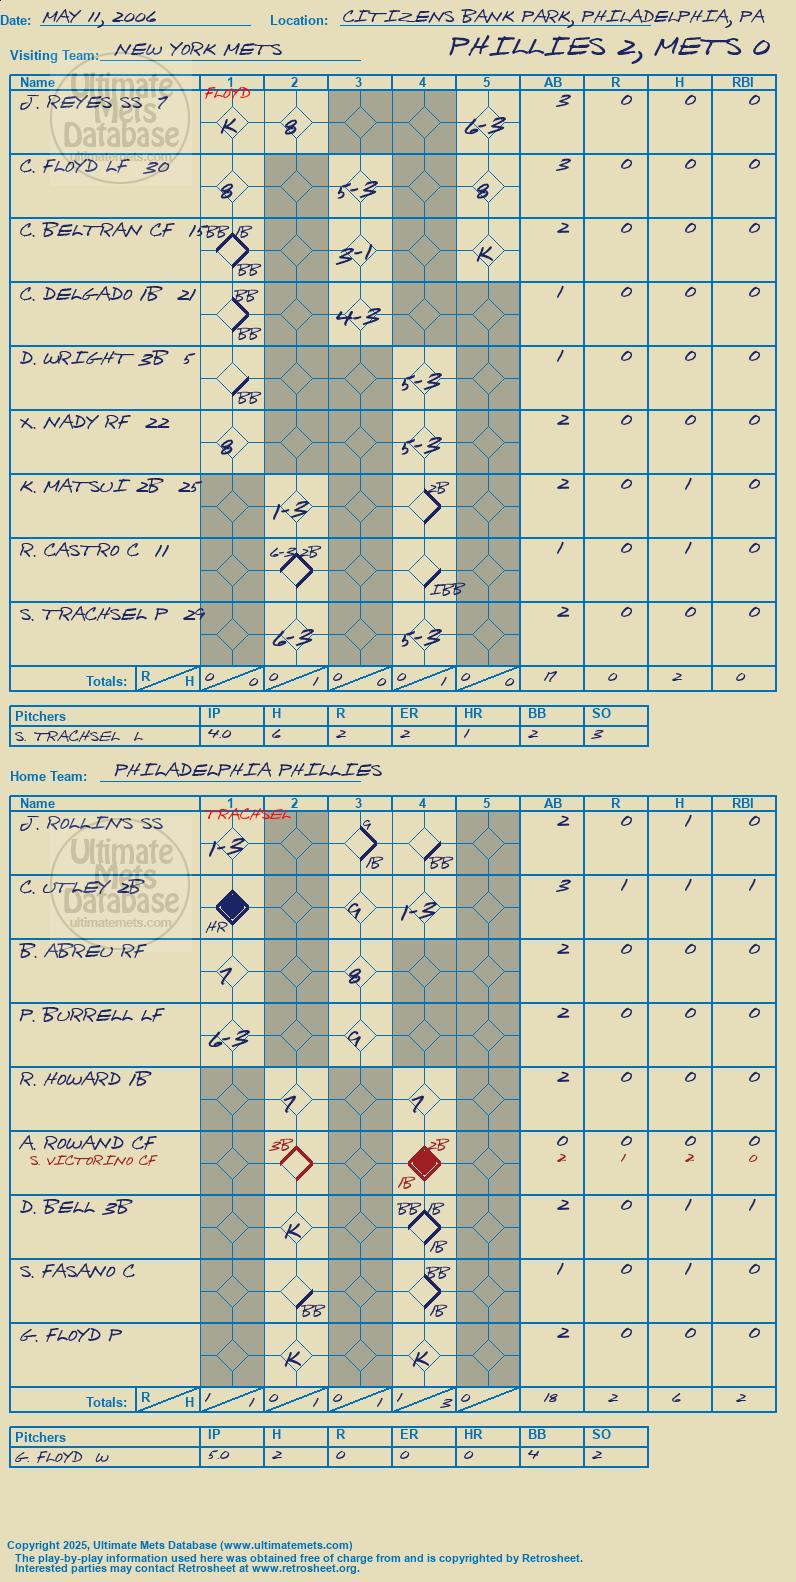 Date: MAY 11, 2006 Location: CITIZENS BANK PARK, PHILADELPHIA, PA
Visiting Team: NEW YORK METS PHILLIES 2, METS 0
Name 1 2 3 4 5 AB R H RBI
FLOYD
J. REYES SS 7 K 8 6-3 3 0 0 0
C. FLOYD LF 30 8 5-3 8 3 0 0 0
C. BELTRAN CF 15 BB 1B BB 3-1 K 2 0 0 0
C. DELGADO 1B 21 BB BB 4-3 1 0 0 0
D. WRIGHT 3B 5 BB 5-3 1 0 0 0
X. NADY RF 22 8 5-3 2 0 0 0
K. MATSUI 2B 25 1-3 2B 2 0 1 0
R. CASTRO C 11 6-3 2B IBB 1 0 1 0
S. TRACHSEL P 29 6-3 5-3 2 0 0 0
Totals: R H 0 0 0 1 0 0 0 1 0 0 17 0 2 0
Pitchers IP H R ER HR BB SO
S. TRACHSEL L 4.0 6 2 2 1 2 3
Home Team: PHILADELPHIA PHILLIES
Name 1 2 3 4 5 AB R H RBI
TRACHSEL
J. ROLLINS SS 1-3 9 1B BB 2 0 1 0
C. UTLEY 2B HR 9 1-3 3 1 1 1
B. ABREU RF 7 8 2 0 0 0
P. BURRELL LF 6-3 9 2 0 0 0
R. HOWARD 1B 7 7 2 0 0 0
A. ROWAND CF 0 0 0 0
S. VICTORINO CF 3B 2B 1B 2 1 2 0
D. BELL 3B K BB 1B 1B 2 0 1 1
S. FASANO C BB BB 1B 1 0 1 0
G. FLOYD P K K 2 0 0 0
Totals: R H 1 1 0 1 0 1 1 3 0 18 2 6 2
Pitchers IP H R ER HR BB SO
G. FLOYD W 5.0 2 0 0 0 4 2
Ultimate Mets Database
ultimatemets.com
Ultimate Mets Database
ultimatemets.com
Copyright 2025, Ultimate Mets Database (www.ultimatemets.com)
The play-by-play information used here was obtained free of charge from and is copyrighted by Retrosheet.
Interested parties may contact Retrosheet at www.retrosheet.org.